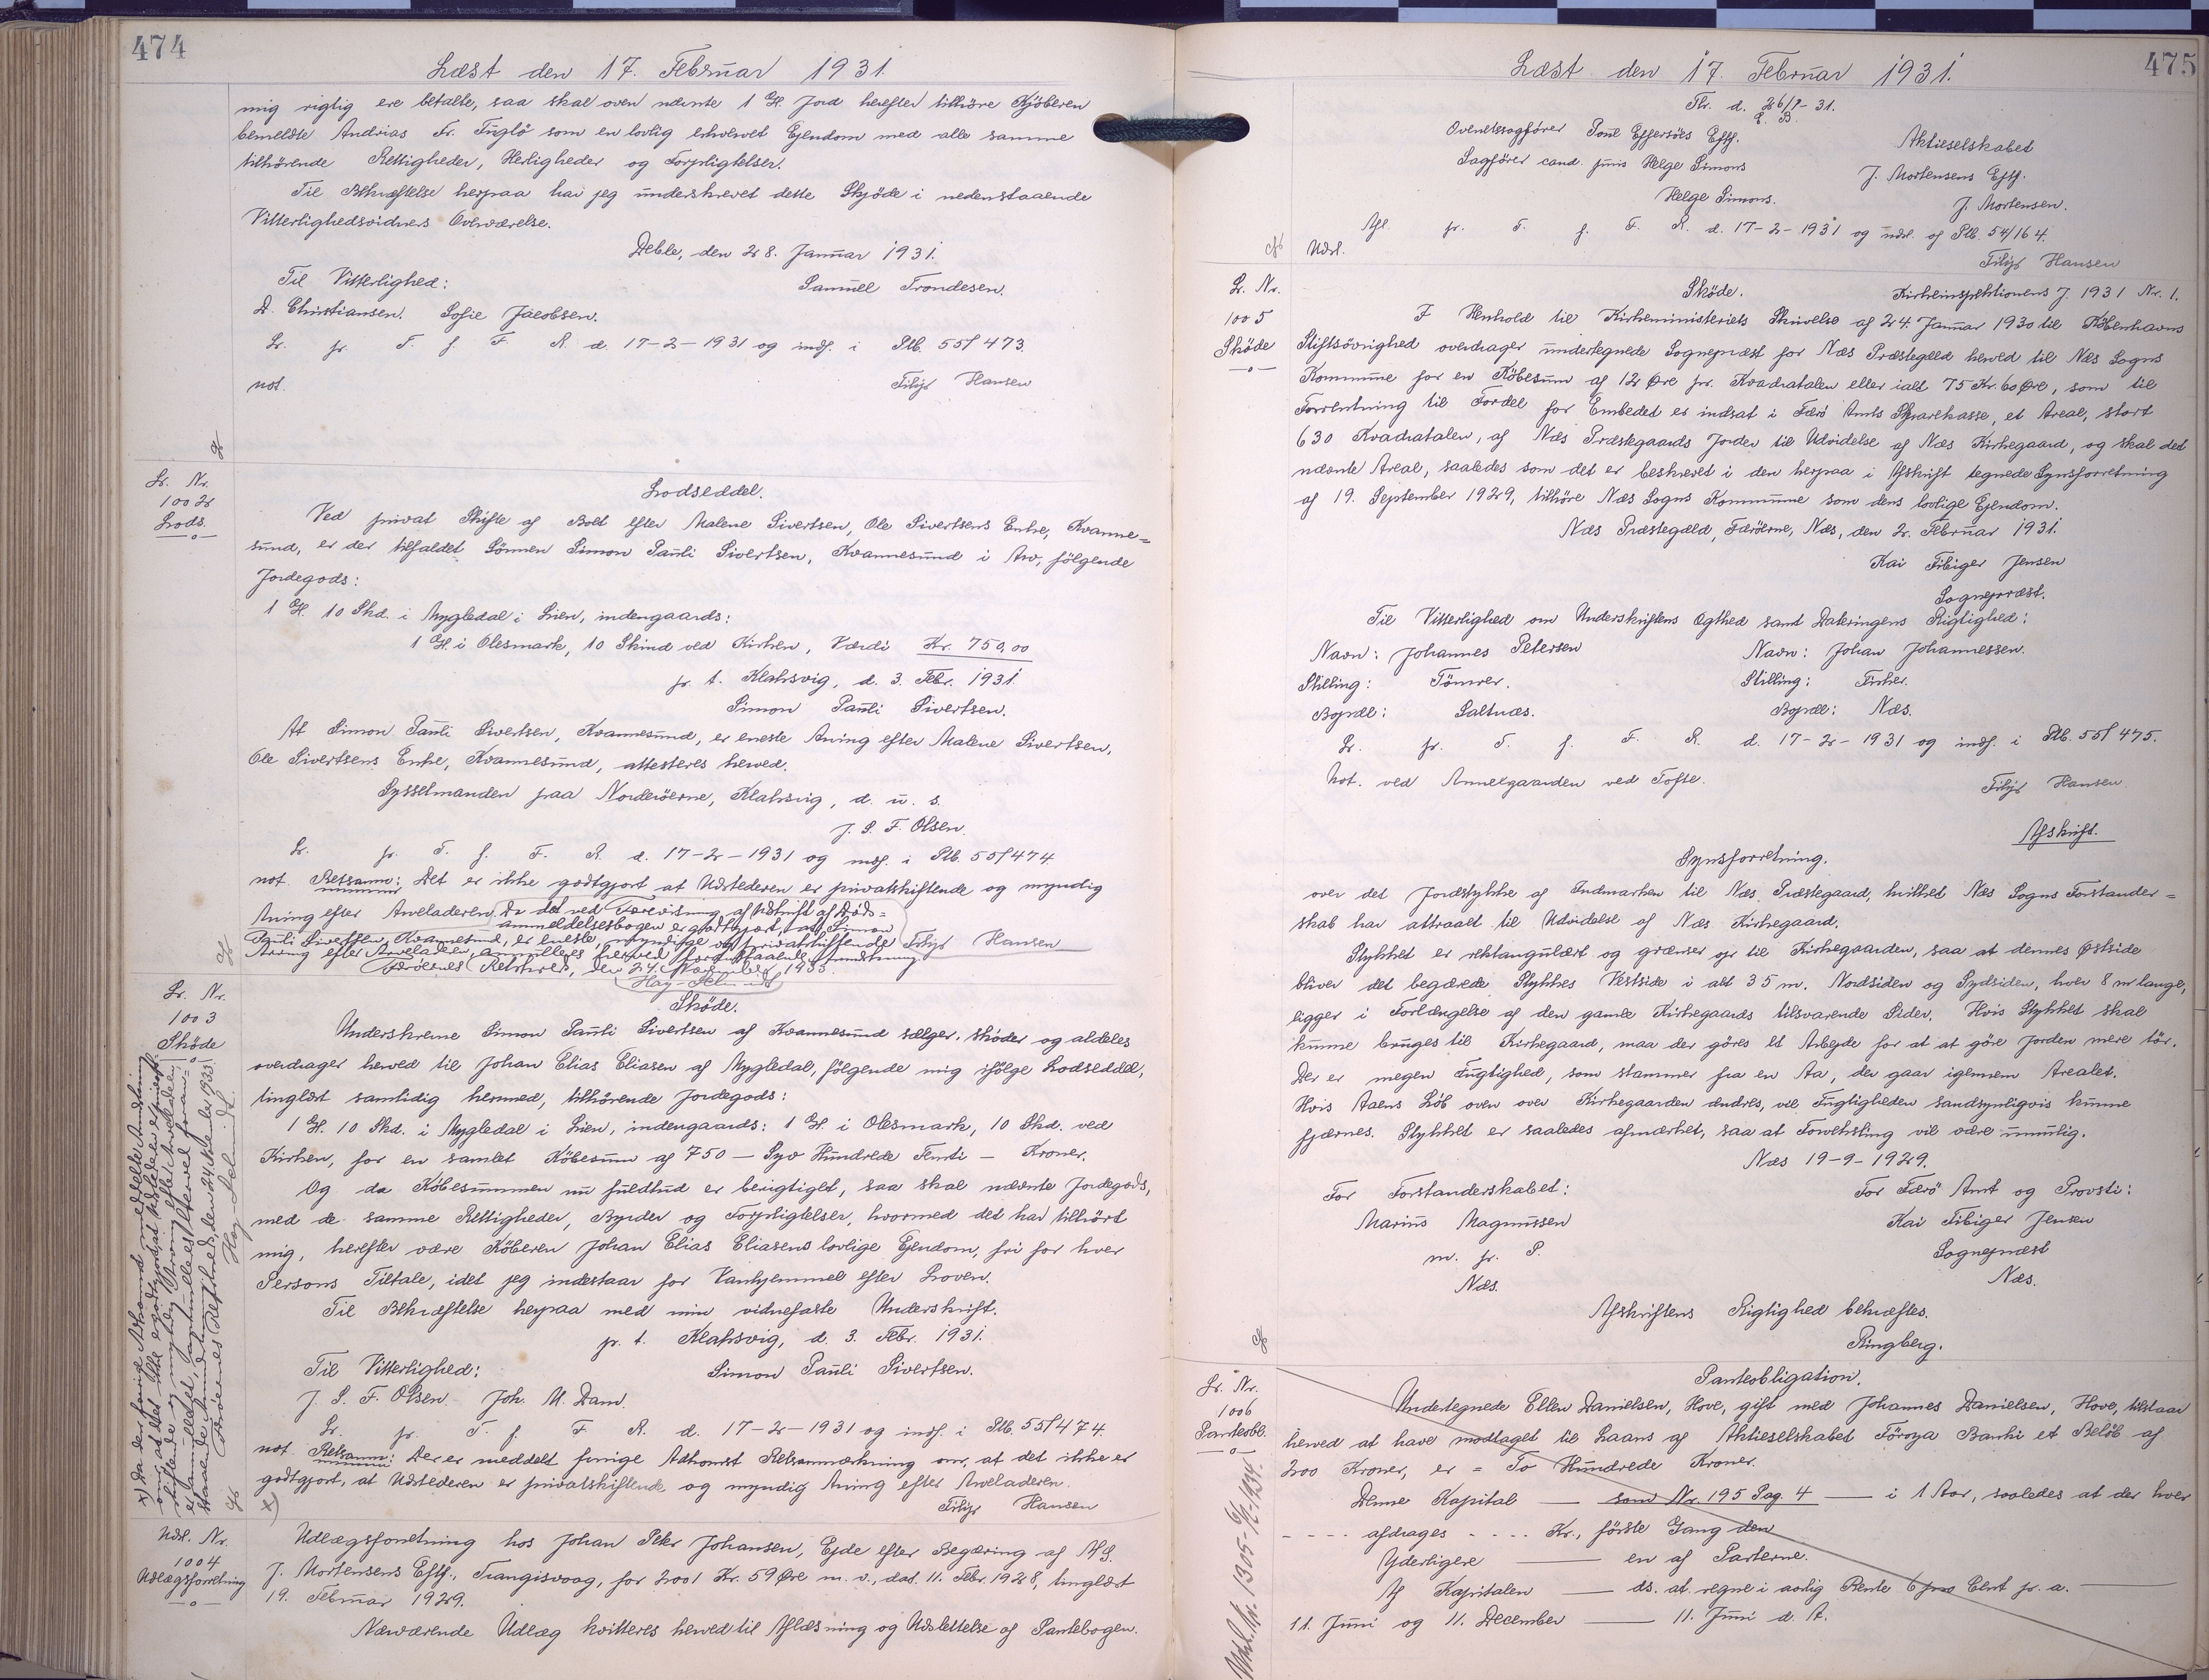 474
Læst den 17. Februar 1931.
mig rigtig ere betalte, saa skal oven nævnte 1 Gl. Jord herefter tilhøre Kjøberen
bemeldte Andrias Fr. Fuglø som en lovlig erhvervet Ejendom med alle samme
tilhørende Rettigheder, Herligheder og Forpligtelser.
Til Bekræftelse herpaa har jeg underskrevet dette Skjøde i nedenstaaende
Vitterlighedsvidners Overværelse.
Deble, den 28. Januar 1931.
Til Vitterlighed: Samuel Trondesen.
D. Christiansen. Sofie Jacobsen.
Lr. pr. T. f. F. R. d. 17-2-1931 og indf. i Ptb. 55/473.
not. Filip Hansen
Lr. Nr.
1002
Lods.
Lodseddel.
Ved privat Skifte af Boet efter Malene Sivertsen, Ole Sivertsens Enke, Kvanne=
sund, er der tilfaldet Sønnen Simon Pauli Sivertsen, Kvannesund i Arv, følgende
Jordegods:
1 Gl. 10 Skd. i Mygledal i Lien, indengaards:
1 Gl. i Olesmark, 10 Skind ved Kirken, Værdi Kr. 750,00
p. t. Klaksvig, d. 3. Febr. 1931.
Simon Pauli Sivertsen.
At Simon Pauli Sivertsen, Kvannesund, er eneste Arving efter Malene Sivertsen,
Ole Sivertsens Enke, Kvannesund, attesteres herved.
Sysselmanden paa Norderøerne, Klaksvig, d. u. s.
J. S. F. Olsen.
Lr. pr. T. f. F. R. d. 17-2-1931 og indf. i Ptb. 55/474
not. Retsanm: Det er ikke godtgjort at Udstederen er privatskiftende og myndig
Arving efter Arveladeren. Da det ved Forevisning af Udskrift af Døds=
anmeldelsesbogen er godtgjort, at Simon
Pauli Sivertsen, Kvannesund, er eneste, myndige og privatskiftende Filip Hansen
Arving efter Arveladeren, annulleres herved foranstaaende Anmærkning
Færøernes Retskreds, den 24. November 1933.
Hay-Schmidt
Lr. Nr.
1003
Skøde
Skøde.
Underskrevne Simon Pauli Sivertsen af Kvannesund sælger, skøder og aldeles
overdrager herved til Johan Elias Eliasen af Mygledal, følgende mig ifølge Lodseddel,
tinglæst samtidig hermed, tilhørende Jordegods:
1 Gl. 10 Skd. i Mygledal i Lien, indengaards: 1 Gl. i Olesmark, 10 Skd. ved
Kirken, for en samlet Købesum af 750 — Syv Hundrede Femti — Kroner.
Og da Købesummen nu fuldtud er berigtiget, saa skal nævnte Jordegods,
med de samme Rettigheder, Byrder og Forpligtelser, hvormed det har tilhørt
mig, herefter være Køberen Johan Elias Eliasens lovlige Ejendom, fri for hver
Persons Tiltale, idet jeg indestaar for Vanhjemmel efter Loven.
Til Bekræftelse herpaa med min vidnefaste Underskrift.
p. t. Klaksvig, d. 3. Febr. 1931.
Til Vitterlighed: Simon Pauli Sivertsen.
J. S. F. Olsen. Joh. M. Dam.
Lr. pr. T. f. F. R. d. 17-2-1931 og indf. i Ptb. 55/474.
not. Retsanm: Der er meddelt forrige Adkomst Retsanmærkning om, at det ikke er
godtgjort, at Udstederen er privatskiftende og myndig Arving efter Arveladeren.
x) Filip Hansen
x) Da den forrige Adkomst meddelte Anmærkning
om, at det ikke er godtgjort at Udstederen er privat=
skiftende og myndig Arving efter Arveladeren
er annulleret, annulleres herved foran=
staaende Anmærkning.
Færøernes Retskreds, den 24. November 1933.
Hay-Schmidt.
Udsl. Nr.
1004
Udlægsforretning
Udlægsforretning hos Johan Peter Johansen, Ejde efter Begæring af A/S.
J. Mortensens Eftf., Trangisvaag, for 2001 Kr. 59 Øre m. v., dat. 11. Febr. 1928, tinglæst
19. Februar 1929.
Nærværende Udlæg kvitteres herved til Aflæsning og Udslettelse af Pantebogen.
475
Læst den 17. Februar 1931.
Thr. d. 26/1-31.
E. B.
Overretssagfører Poul Effersøes Eftf. Aktieselskabet
Sagfører cand. juris Helge Simons J. Mortensens Eftf.
Helge Simons. J. Mortensen.
Afl. pr. T. f. F. R. d. 17-2-1931 og udsl. af Ptb. 54/164.
Udsl. Filip Hansen
Lr. Nr.
1005
Skøde
Skøde. Kirkeinspektionens J. 1931 Nr. 1.
I Henhold til Kirkeministeriets Skrivelse af 24. Januar 1930 til Københavns
Stiftsøvrighed overdrager undertegnede Sognepræst for Næs Præstegæld herved til Næs Sogns
Kommune for en Købesum af 12 Øre pr. Kvadratalen eller ialt 75 Kr. 60 Øre, som til
Forrentning til Fordel for Embedet er indsat i Færø Amts Sparekasse, et Areal, stort
630 Kvadratalen, af Næs Præstegaards Jorder til Udvidelse af Næs Kirkegaard, og skal det
nævnte Areal, saaledes som det er beskrevet i den herpaa i Afskrift tegnede Synsforretning
af 19. September 1929, tilhøre Næs Sogns Kommune som dens lovlige Ejendom.
Næs Præstegæld, Færøerne, Næs, den 2. Februar 1931.
Kai Fibiger Jensen
Sognepræst.
Til Vitterlighed om Underskriftens Ægthed samt Dateringens Rigtighed:
Navn: Johannes Petersen Navn: Johan Johannessen.
Stilling: Tømrer. Stilling: Fisker.
Bopæl: Saltnæs. Bopæl: Næs.
Lr. pr. T. f. F. R. d. 17-2-1931 og indf. i Ptb. 55/475.
Not. ved Annexgaarden ved Tofte. Filip Hansen
Afskrift.
Synsforretning.
over det Jordstykke af Indmarken til Næs Præstegaard, hvilket Næs Sogns Forstander=
skab har attraaet til Udvidelse af Næs Kirkegaard.
Stykket er rektangulært og grænser op til Kirkegaarden, saa at dennes Østside
bliver det begærede Stykkes Vestside i alt 35 m. Nordsiden og Sydsiden, hver 8 m lange,
ligger i Forlængelse af den gamle Kirkegaards tilsvarende Sider. Hvis Stykket skal
kunne bruges til Kirkegaard, maa der gøres et Arbejde for at at gøre Jorden mere tør.
Der er megen Fugtighed, som stammer fra en Aa, der gaar igennem Arealet.
Hvis Aaens Løb oven over Kirkegaarden ændres, vil Fugtigheden sandsynligvis kunne
fjærnes. Stykket er saaledes afmærket, saa at Forveksling vil være umulig.
Næs 19-9-1929.
For Forstanderskabet: For Færø Amt og Provsti:
Marius Magnussen Kai Fibiger Jensen
m. p. S. Sognepræst
Næs. Næs.
Afskriftens Rigtighed bekræftes.
Ringberg.
Lr. Nr.
1006
Panteobl.
Panteobligation.
Undertegnede Ellen Danielsen, Hove, gift med Johannes Danielsen, Hove, tilstaar
herved at have modtaget til Laans af Aktieselskabet Föroya Banki et Beløb af
200 Kroner, er = To Hundrede Kroner.
Denne Kapital — som Nr. 195 Pag. 4 — i 1 Aar, saaledes at der hver
- - - - afdrages - - - - Kr., første Gang den
Yderligere — en af Parterne.
Af Kapitalen — ds. at regne i aarlig Rente 6 pro Cent p. a. —
11. Juni og 11. December — 11. Juni d. A.